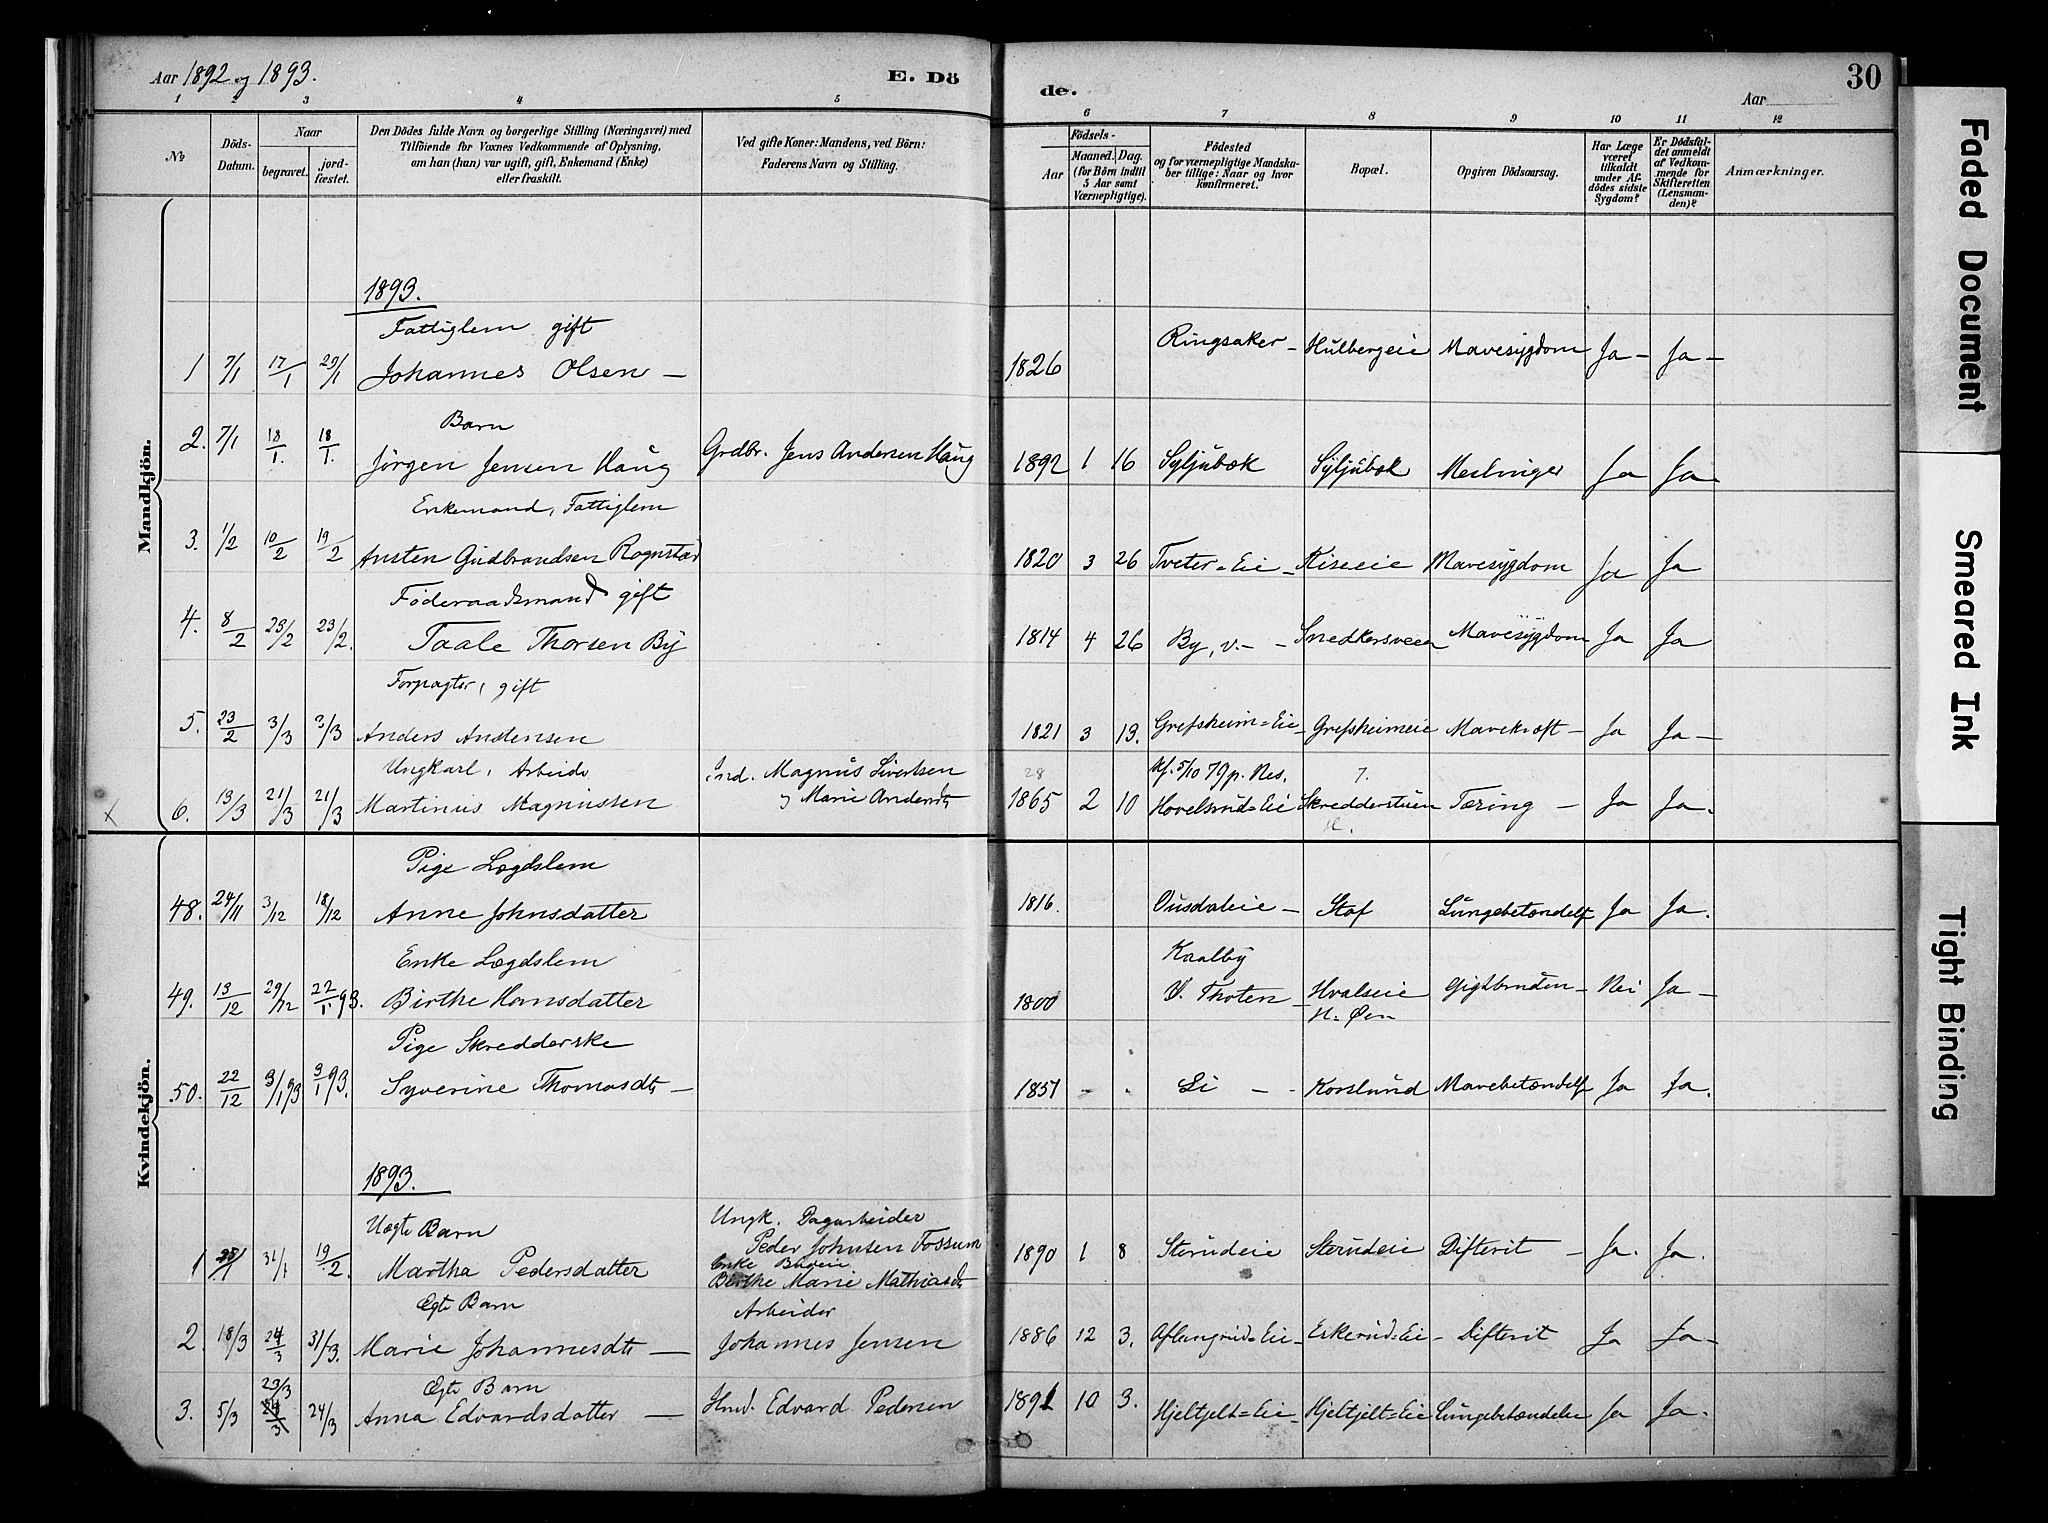 Aar 1892 og 1893.
E. Dö
de.
Aar
30
1 2 3 4 5 6 7 8 9 10 11 12
No
Döds-Datum.
Naar
begravet.
jordfæstet.
Den Dödes fulde Navn og borgerlige Stilling (Næringsvei) med
Tilföiende for Voxnes Vedkommende af Oplysning,
om han (hun) var ugift, gift, Enkemand (Enke)
eller fraskilt.
Ved gifte Koner: Mandens, ved Börn:
Faderens Navn og Stilling.
Födsels-
Aar
Maaned. Dag.
(for Börn indtil
5 Aar samt
Værnepligtige).
Födested
og for værnepligtige Mandska-
ber tillige: Naar og hvor
konfirmeret.
Bopæl.
Opgiven Dödsaarsag.
Har Læge
været
tilkaldt
under Af-
dödes sidste
Sygdom?
Er Dödsfal-
det anmeldt
af Vedkom-
mende for
Skifteretten
(Lensman-
den)?
Anmærkninger.
Mandkjön.
1893.
Fattiglem gift
1 7/1 17/1 29/1 Johannes Olsen — 1826 Ringsaker - Hulbergeie Mavesygdom Ja - Ja -
Barn
2. 7/1 18/1. 18/1. Jørgen Jensen Haug Grdbr. Jens Andersen Haug 1892 1 16 Syljubæk Syljubæk Meslinger Ja Ja.
Enkemand, Fattiglem
3. 1/2 10/2 19/2 Austen Gudbrandsen Rognstad 1820 3 26 Tveter=Eie - Kiseeie Mavesygdom Ja Ja
Føderaadsmand gift
4. 8/2 23/2 23/2. Taale Thorsen By 1814 4 26 By, v. - - Snedkersveen Mavesygdom Ja Ja
Forpagter, gift
5. 23/2 3/3 3/3 Anders Austensen 1821 3 13. Grefsheim=Eie - Grefsheimeie Mavekræft - Ja Ja -
Ungkarl, Arbeider Ind. Magnus Sivertsen Kf. 5/10 79 p. Nes.
x 6. 13/3 21/3 21/3 Martinus Magnussen Marie Andersdt 1865 2 10 Hovelsrud=Eie Skredderstuen Tæring - Ja Ja.
Kvindekjön.
Pige Lægdslem
48. 24/11 3/12 18/12 Anne Johnsdatter 1816. - Staf Lungebetændelse Ja Ja.
Enke Lægdslem Kaalby
49. 13/12 29/12 22/1 93. Birthe Hansdatter 1800 V. Thoten - Hvalseie Gigtbruden - Nei Ja -
H. Øen
Pige Skredderske
50. 22/12 3/1 93 3/1 93. Syverine Thomasdt - 1857 - - Li - - Korslund Mavebetændelse Ja Ja.
1893.
Uægte Barn Ungk. Dagarbeider
Peder Johnsen Fossum
1 31/1 19/2. Martha Pedersdatter Enke
Birthe Marie Mathiasdt 1890 1 8 Sterudeie Sterudeie Difterit - Ja. Ja.
Ægte Barn Arbeider
2. 18/3 24/3 31/3. Marie Johannesdt — Johannes Jensen 1886 12 3. Eskerud=Eie - Difterit Ja Ja -
Ægte Barn 23/3
3. 5/3 24/3 24/3 Anna Edvardsdatter — Hmd. Edvard Pedersen 1891 10 3. Hjeltjelt=Eie - Hjeltjelt=Eie Lungebetændelse Ja Ja.
Faded Document
Smeared Ink
Tight Binding